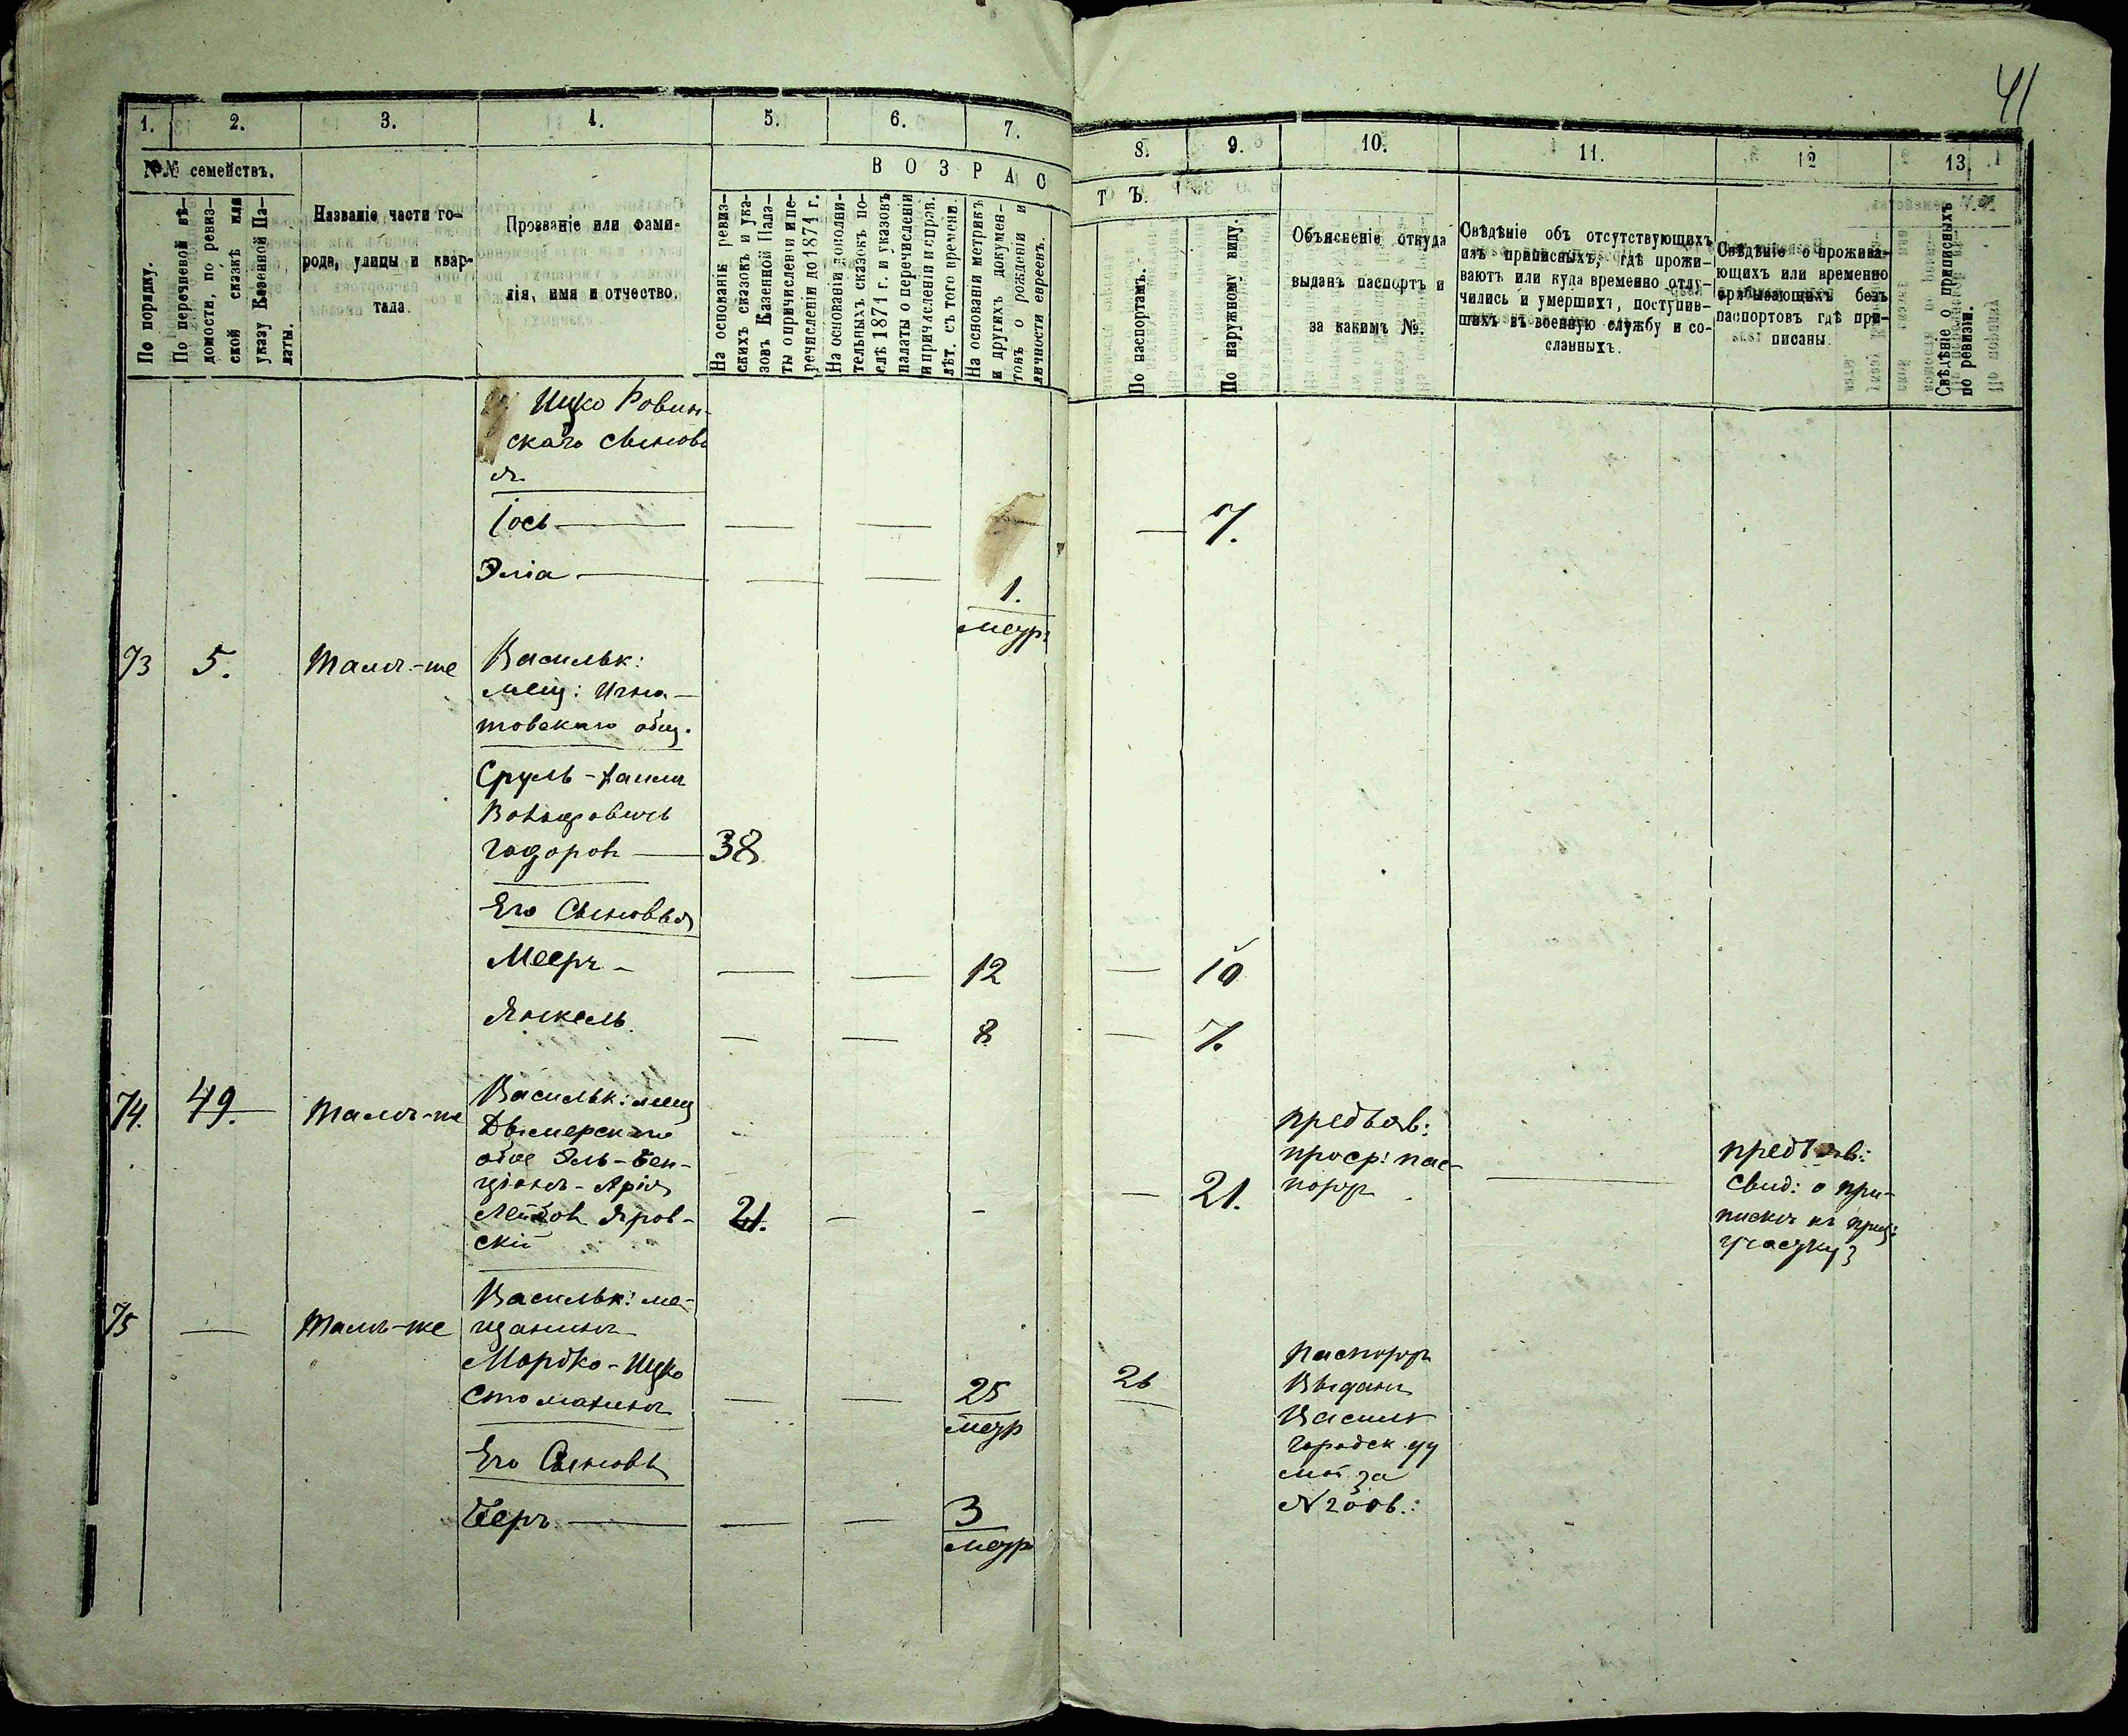 41
1. 2. 3. 4. 5. 6. 7. 8. 9. 10. 11. 12 13.
№№ семействъ.
По порядку.
По перечневой вѣ-
домости, по ревиз-
ской сказкѣ или
указу Казенной Па-
латы.
Названіе части го-
рода, улицы и квар-
тала.
Прозваніе или фами-
лія, имя и отчество.
ВОЗРАСТЪ.
На основаніи ревиз-
скихъ сказокъ и ука-
зовъ Казенной Пала-
ты о причисленіи и пе-
речисленіи до 1871 г.
На основаніи дополни-
тельныхъ сказокъ по-
слѣ 1871 г. и указовъ
палаты о перечисленіи
и причисленіи и справ.
лѣт. съ того времени.
На основаніи метрикъ
и другихъ докумен-
товъ о рожденіи и
личности евреевъ.
По паспортамъ.
По наружному виду.
Объясненіе откуда
выданъ паспортъ и
за какимъ №.
Свѣдѣніе объ отсутствующихъ
изъ приписныхъ, гдѣ прожи-
ваютъ или куда временно отлу-
чились и умершихъ, поступив-
шихъ въ военную службу и со-
сланныхъ.
Свѣдѣніе о прожива-
ющихъ или временно
прибывающихъ безъ
паспортовъ гдѣ при-
писаны.
Свѣдѣніе о приписныхъ
по ревизіи.
Ицко Ровин-
скаго сынов
я
Іось — — — — 7.
Эліа — — — 1.
метр
73 5. Тамъ-же Васильк:
мещ: Игна-
товскаго общ.
Сруль-
Годоров — 38
Его Сыновья
Мееръ - — — 12 — 10
Янкель. — — 8 — 7.
74. 49. Тамъ-же Васильк: мещ
Дымерскаго
обще Эль-Бен-
ціонъ-Арія
Лейбов Яров-
скій 21. — - — 21.
предъяв:
проср: пас-
порт
—
предъяв:
Свид: о при-
пискѣ къ приз:
участку 3
75 — Тамъ-же Васильк: ме-
щанинъ
Мордко-Ицко
Столманъ — — 25
метр
26
Паспортъ
Выданъ
Васильк
Городск ду
мой за
№ 2006.:
Его Сыновья
Беръ — — — 3
метр